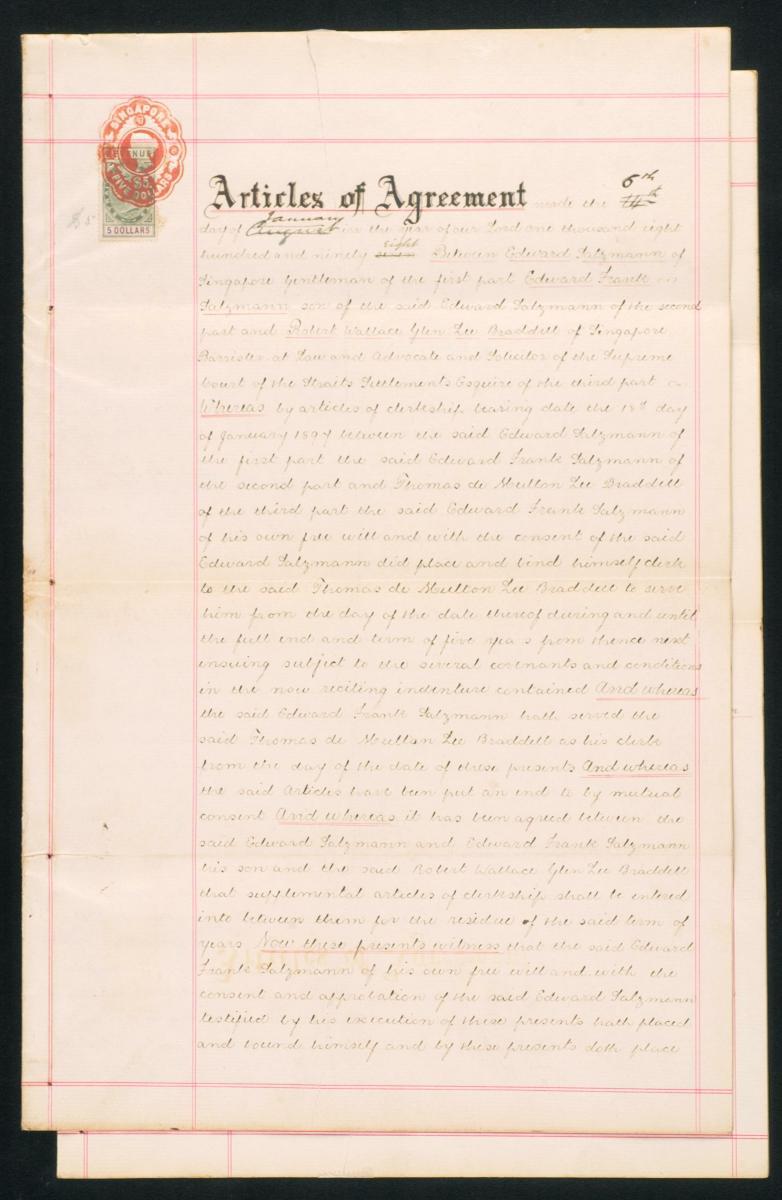 SINGAPORE
REVENUE
$5
FIVE DOLLARS
5 DOLLARS
$5
Articles of Agreement made the 14th 6th
day of August January in the year of our Lord one thousand eight
hundred and ninety seven eight Between Edward Salzmann of
Singapore Gentleman of the first part Edward Frank
Salzmann son of the said Edward Salzmann of the second
part and Robert Wallace Glen Lee Braddell of Singapore
Barrister at Law and Advocate and Solicitor of the Supreme
Court of the Straits Settlements Esquire of the third part
Whereas by articles of clerkship bearing date the 18th day
of January 1897 between the said Edward Salzmann of
the first part the said Edward Frank Salzmann of
the second part and Thomas de Multon Lee Braddell
of the third part the said Edward Frank Salzmann
of his own free will and with the consent of the said
Edward Salzmann did place and bind himself clerk
to the said Thomas de Multon Lee Braddell to serve
him from the day of the date thereof during and until
the full end and term of five years from thence next
ensuing subject to the several covenants and conditions
in the now reciting indenture contained And whereas
the said Edward Frank Salzmann hath served the
said Thomas de Multon Lee Braddell as his clerk
from the day of the date of these presents And whereas
the said Articles have been put an end to by mutual
consent And whereas it has been agreed between the
said Edward Salzmann and Edward Frank Salzmann
his son and the said Robert Wallace Glen Lee Braddell
that supplemental articles of clerkship shall be entered
into between them for the residue of the said term of
years Now these presents witness that the said Edward
Frank Salzmann of his own free will and with the
consent and approbation of the said Edward Salzmann
testified by his execution of these presents hath placed
and bound himself and by these presents doth place